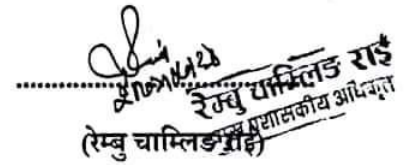 रेम्बु चाम्लिङ राई
प्रशासकीय अधिकृत
(रेम्बु चाम्लिङ राई)